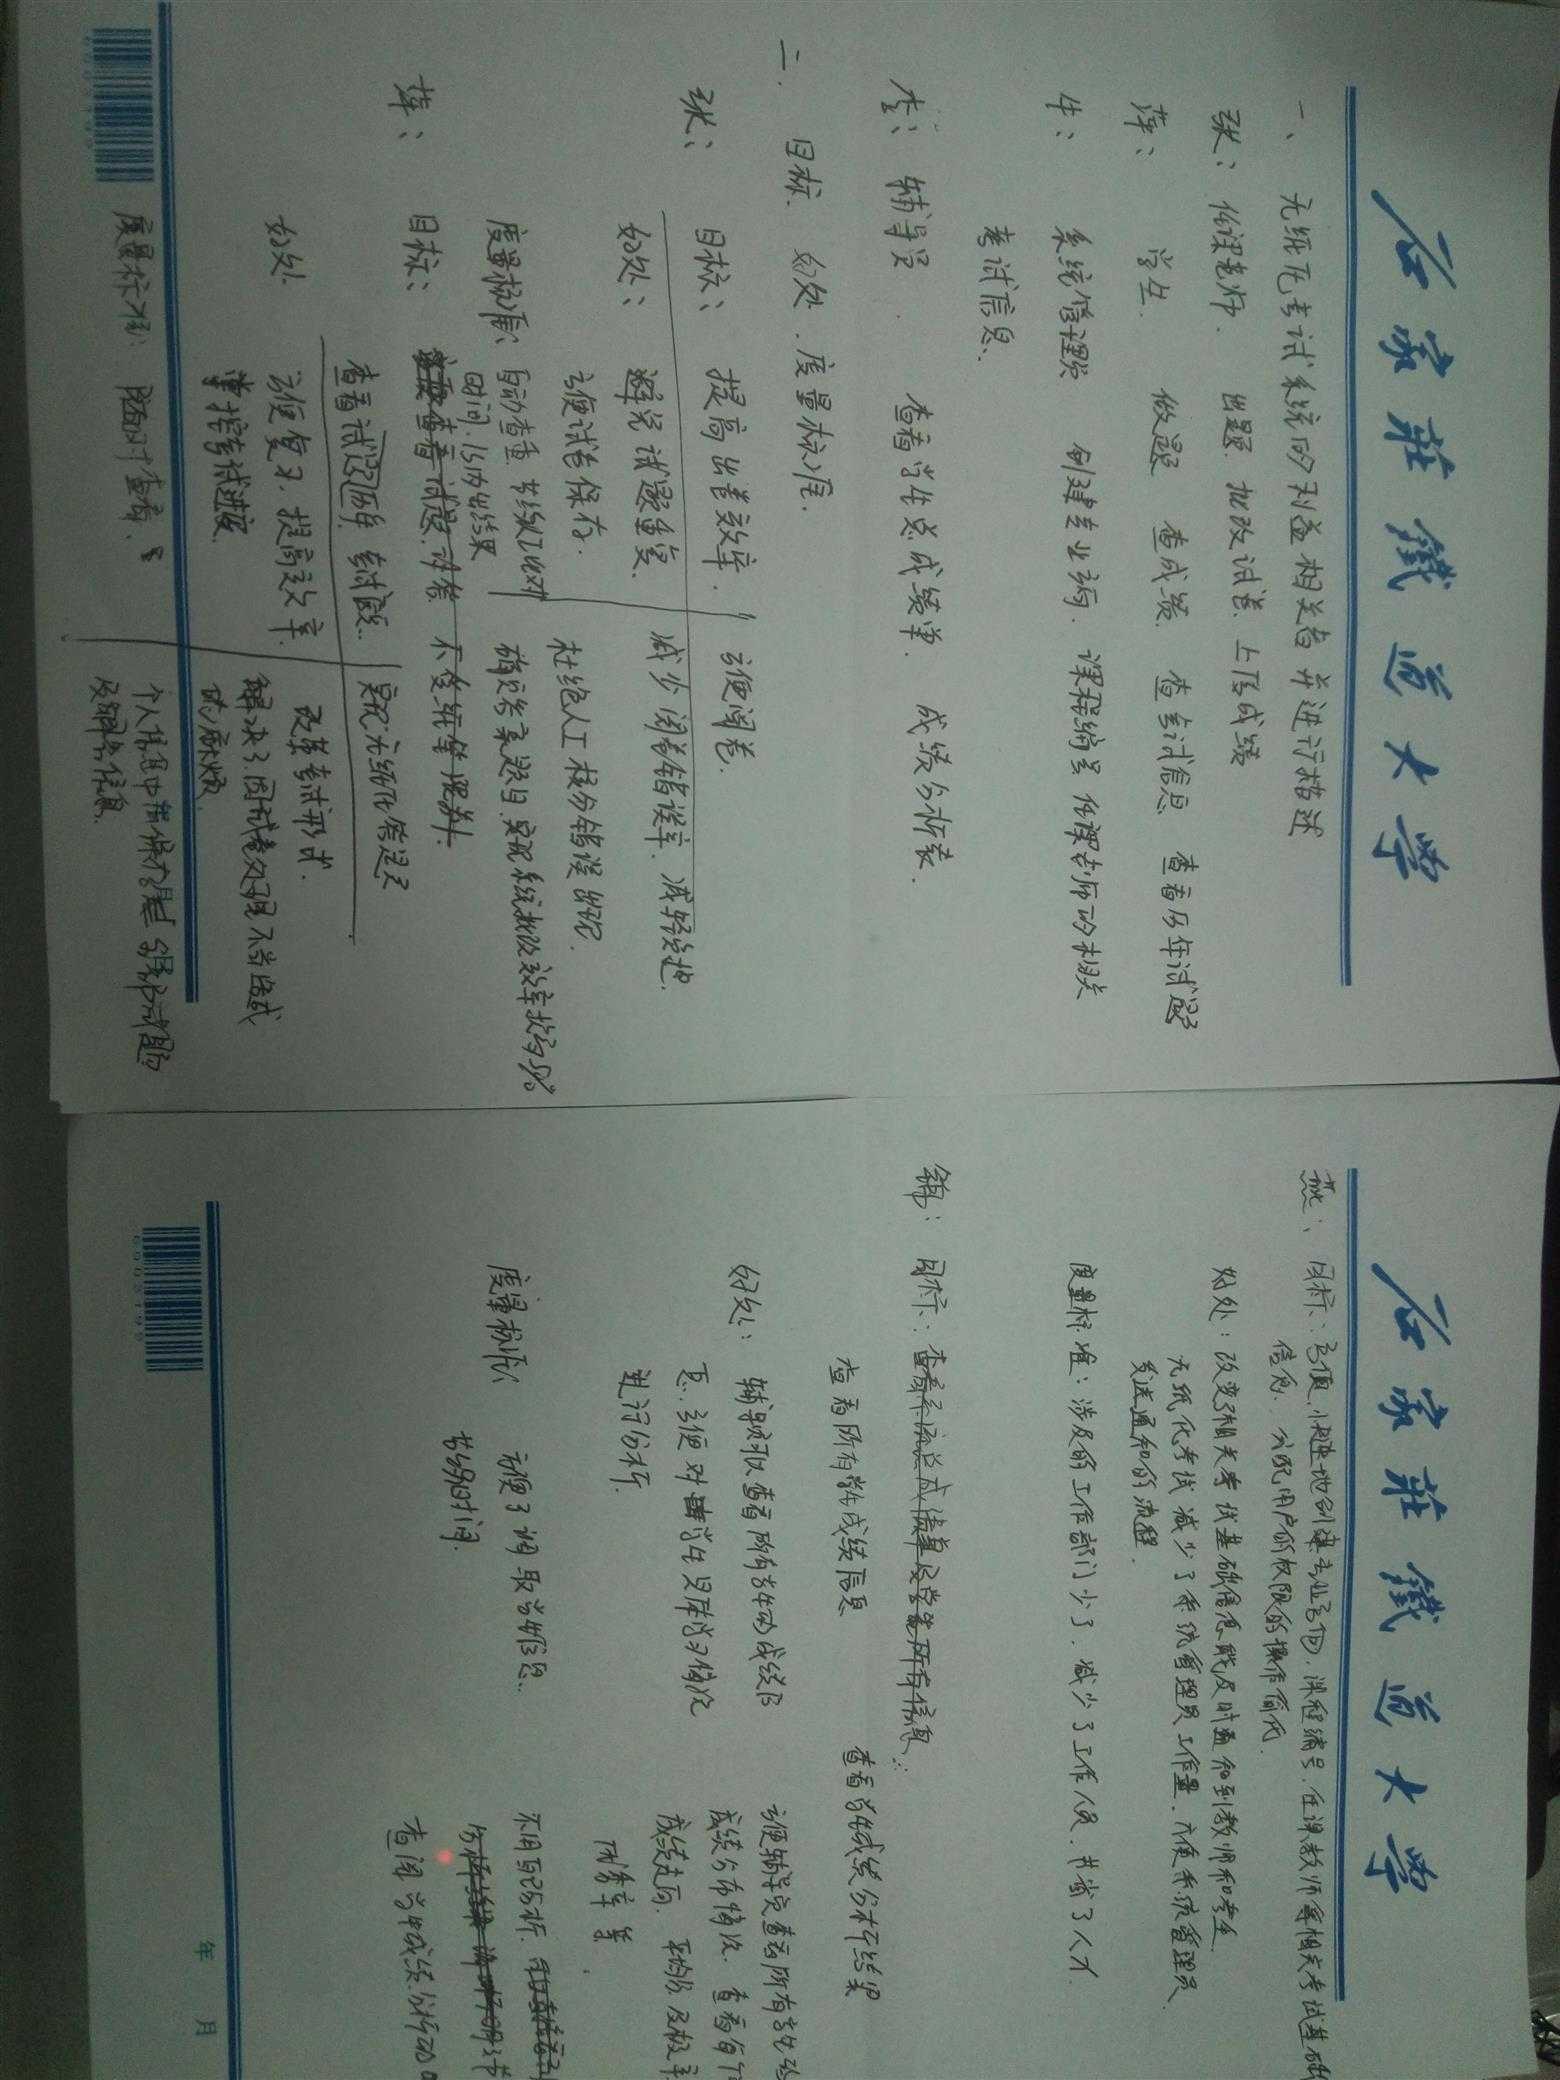 石家莊鐵道大學
一、无纸化考试系统的利益相关者并进行描述
张：任课老师. 出题. 批改试卷. 上传成绩
萍： 学生. 做题 查成绩. 查考试信息 查看历年试题
牛： 系统管理员 创建专业名称、课程编号 任课老师的相关
考试信息.
李：辅导员. 查看学生总成绩单. 成绩分析表.
二. 目标. 好处. 度量标准.
张： 目标： 提高出卷效率. 方便阅卷.
好处： 避免试题重复. 减少阅卷错误率. 减轻负担.
方便试卷保存. 杜绝人工核分错误出现.
度量标准： 自动查重 节约了比对
时间. 1s内出结果
确定答案题目. 实现系统批改效率提高5%
萍： 目标：
查看试题 实现无纸化答题
好处 方便复习. 提高效率. 改革考试形式.
掌控考试进度. 解决了因试卷处理不当造成
的麻烦
度量标准： 随时查看. 个人信息中
及 信息
石家莊鐵道大學
燕： 目标：方便.快速地创建专业名称. 课程编号. 任课教师等相关考试基础
信息. 分配用户的权限的操作简化.
好处：改变了相关考试基础信息能及时通知到教师和考生.
无纸化考试减少了系统管理员工作量. 方便系统管理员
发送通知的流程.
度量标准：涉及的工作部门少了. 减少了工作人员. 节省了人才.
锦： 目标：
查看所有学生成绩信息 查看学生成绩分析结果
好处： 辅导员可以查看所有学生的成绩信
息. 方便对 学生具体学习情况
进行分析.
方便辅导员查看所有学生
成绩分布情况. 查看每
成绩走向. 平均分及
等
度量标准： 方便了调取学生信息.
节约时间.
不用自己分析.
查阅学生成绩分析
年 月